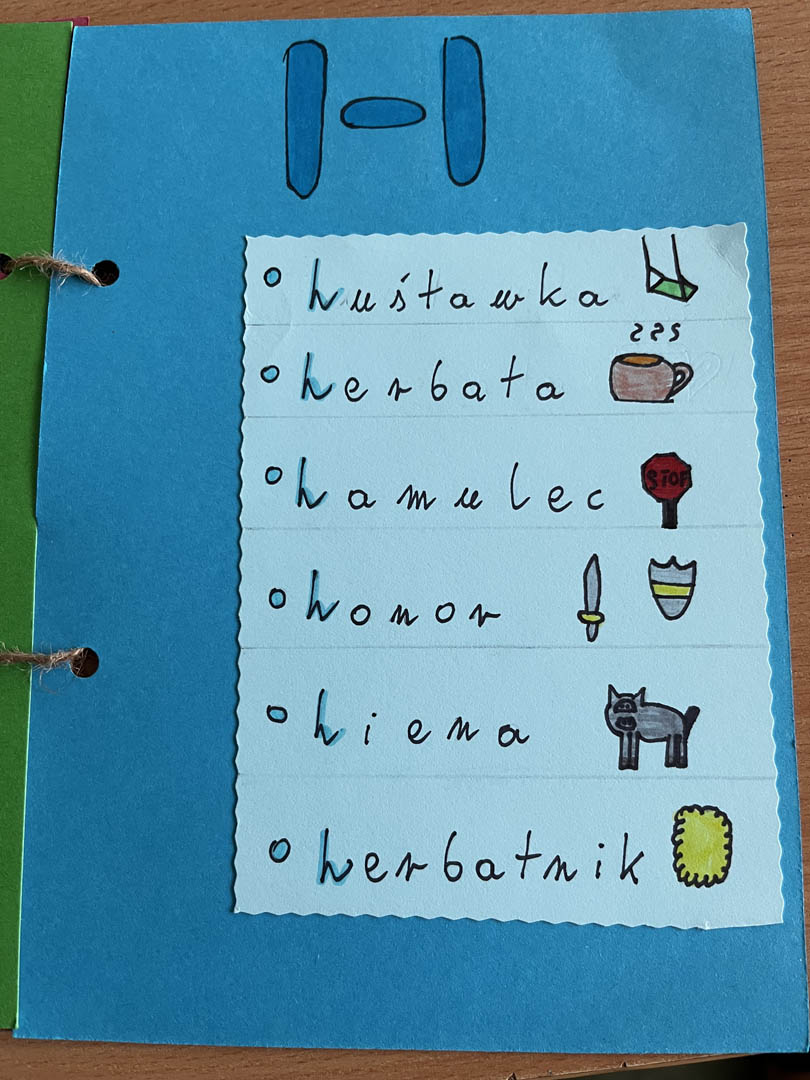 H
huśtawka
herbata
hamulec
STOP
honor
hiena
herbatnik